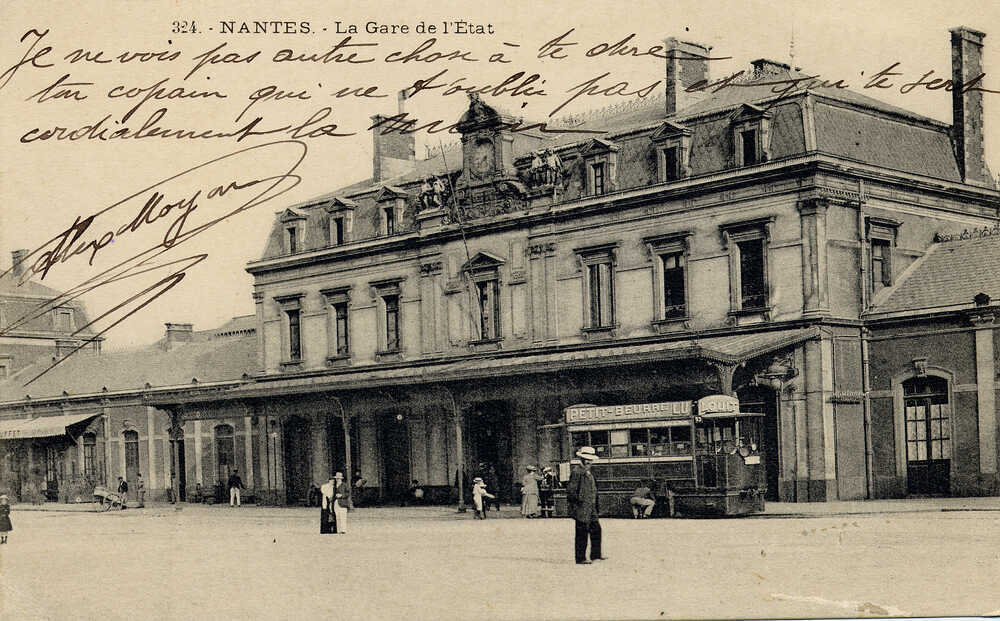 324. - NANTES. - La Gare de l'Etat
Je ne vois pas autre chose à te dire
ton copain qui ne t'oublie pas et qui te sert
cordialement la main
Alex Moyon
PETIT-BEURRE LU LOUIT